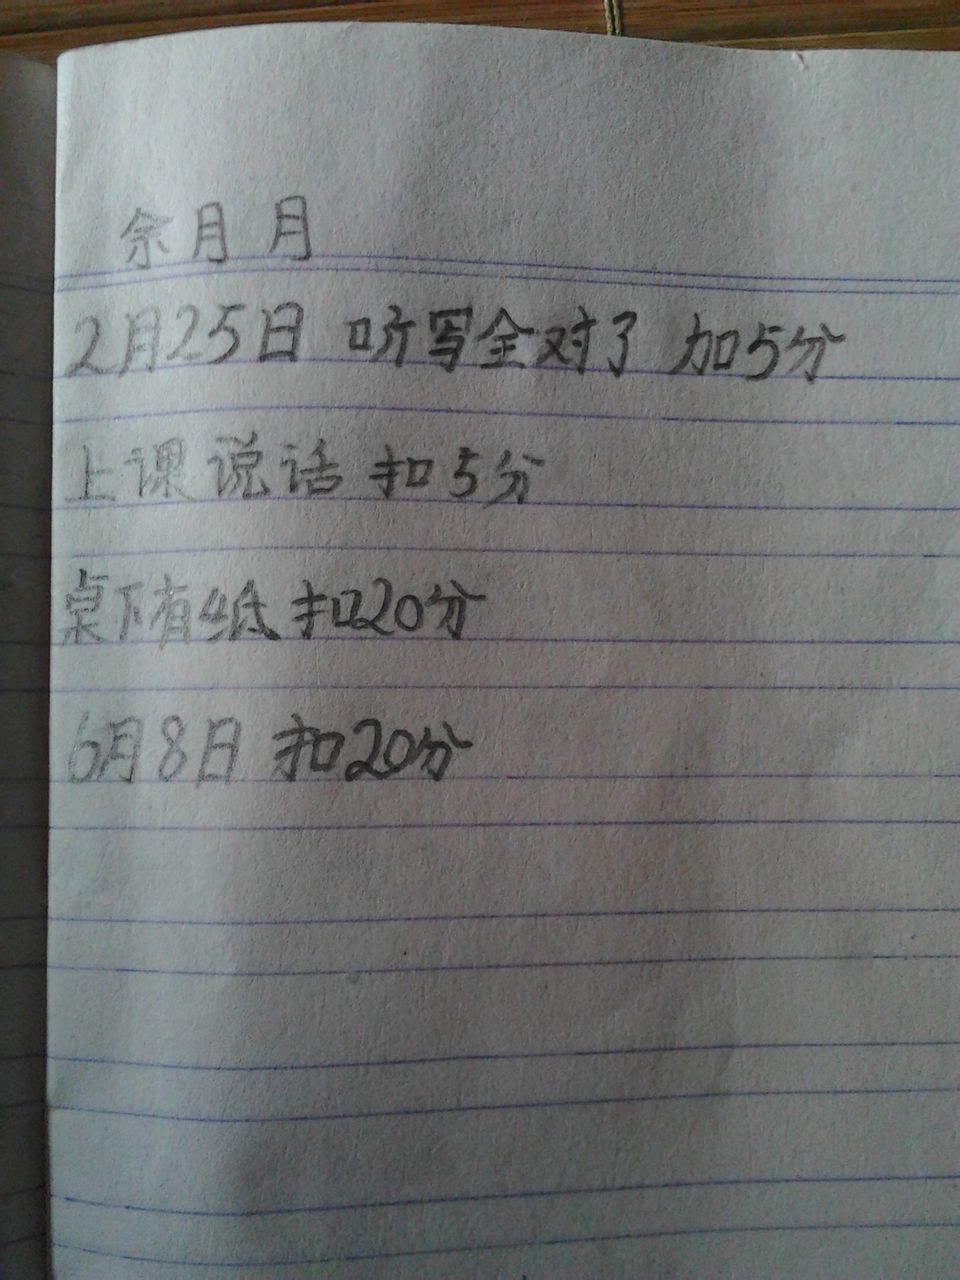 余月月
2月25日 听写全对了 加5分
上课说话 扣5分
桌下有纸 扣20分
6月8日 扣20分